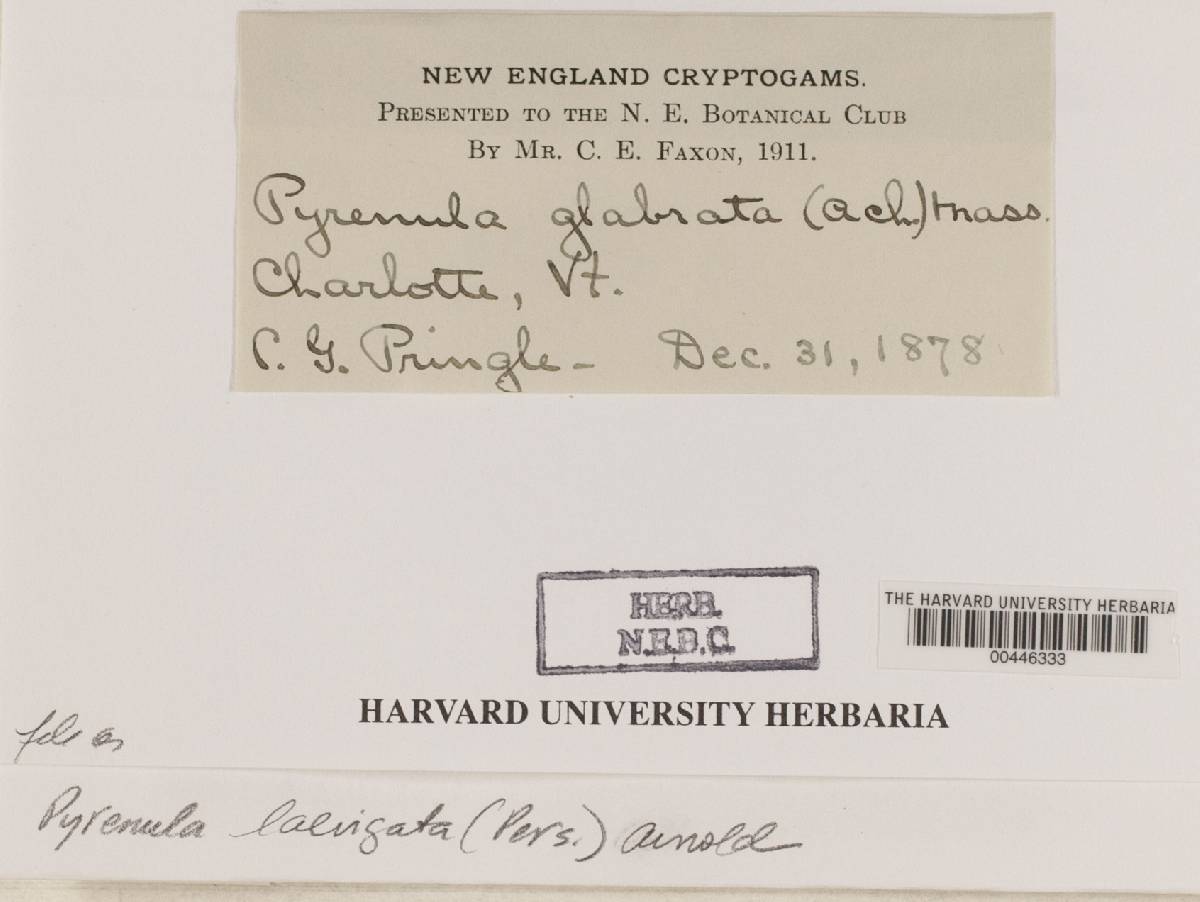 NEW ENGLAND CRYPTOGAMS.
PRESENTED TO THE N. E. BOTANICAL CLUB
BY MR. C. E. FAXON, 1911.
Pyrenula glabrata (Ach.) Mass.
Charlotte, Vt.
C. G. Pringle - Dec. 31, 1878
HERB.
N.E.B.C.
THE HARVARD UNIVERSITY HERBARIA
00446333
HARVARD UNIVERSITY HERBARIA
file as
Pyrenula laevigata (Pers.) Arnold